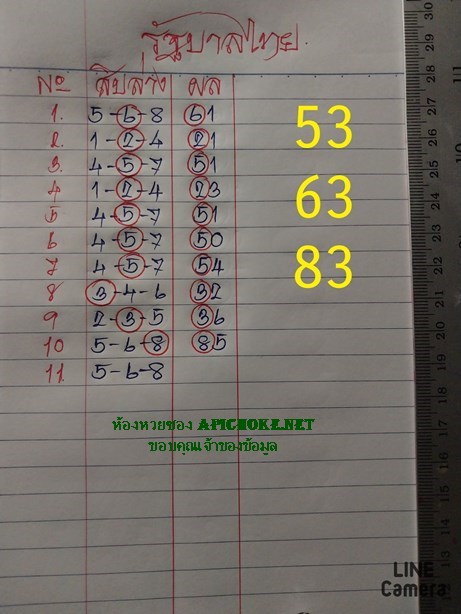 รัฐบาลไทย
Nº สิบล่าง ผล
1. 5-6-8 61
2. 1-2-4 21
3. 4-5-7 51
4 1-2-4 23
5 4-5-7 51
6 4-5-7 50
7 4-5-7 54
8 3-4-6 32
9 2-3-5 36
10 5-6-8 85
11. 5-6-8
53
63
83
ห้องหวยซอง APICHOKE.NET
ขอบคุณเจ้าของข้อมูล
30
29
28
27
26
25
24
23
22
21
20
19
18
17
16
15
14
13
LINE
Camera